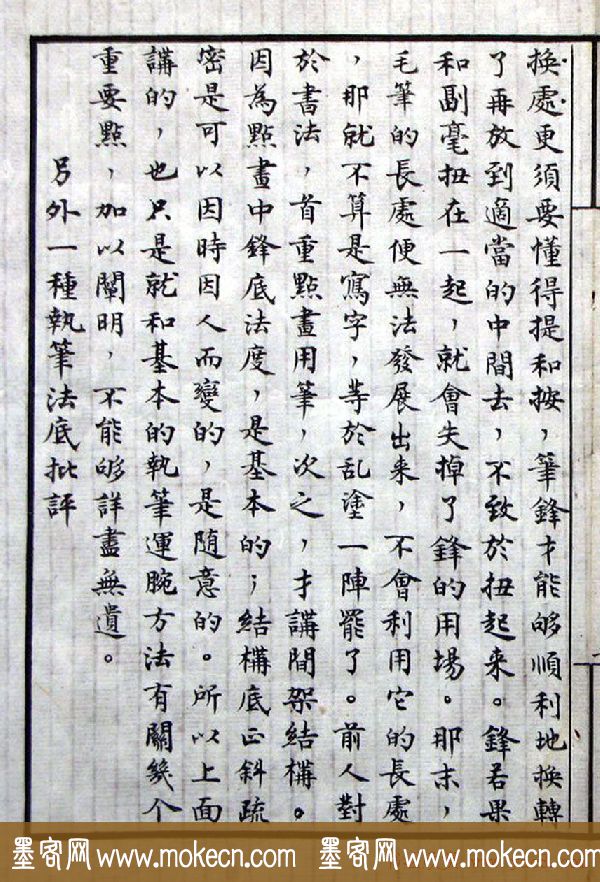 換處更須要懂得提和按，筆鋒才能够順利地換轉
了再放到適當的中間去，不致於扭起来。鋒若果
和副毫扭在一起，就會失掉了鋒的用場。那末，
毛筆的長處便無法發展出来，不會利用它的長處
，那就不算是寫字，等於乱塗一陣罷了。前人對
於書法，首重點畫用筆，次之，才講間架結構。
因為點畫中鋒底法度，是基本的；結構底正斜疏
密是可以因時因人而變的，是随意的。所以上面
講的，也只是就和基本的執筆運腕方法有關幾个
重要點，加以闡明，不能够詳盡無遺。
另外一種執筆法底批評
墨客网 www.mokecn.com 墨客网 www.mokecn.com